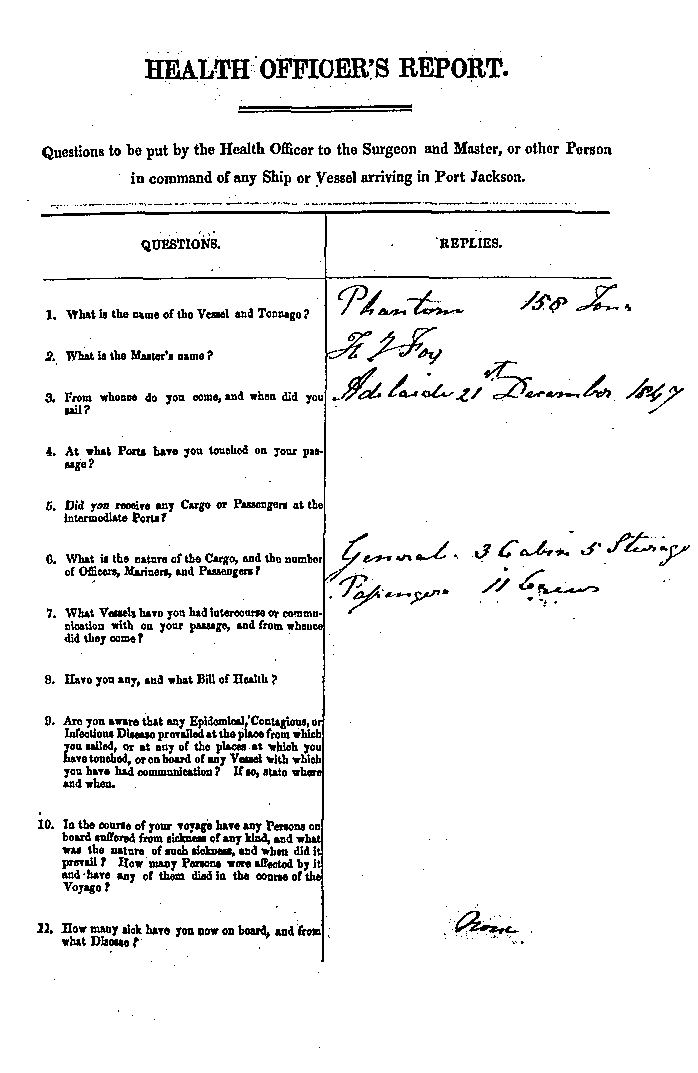 HEALTH OFFICER'S REPORT.
Questions to be put by the Health Officer to the Surgeon and Master, or other Person
in command of any Ship or Vessel arriving in Port Jackson.
QUESTIONS.
REPLIES.
1. What is the name of the Vessel and Tonnage?
Phantom 158 Tons
2. What is the Master's name?
Foy
3. From whence do you come, and when did you
sail?
Adelaide 21st December 1847
4. At what Ports have you touched on your pas-
sage?
5. Did you receive any Cargo or Passengers at the
intermediate Ports?
6. What is the nature of the Cargo, and the number
of Officers, Mariners, and Passengers?
General. 3 Cabin 5 Steerage
Passengers 11 Crew
7. What Vessels have you had intercourse or commu-
nication with on your passage, and from whence
did they come?
8. Have you any, and what Bill of Health?
9. Are you aware that any Epidemical, Contagious, or
Infectious Disease prevailed at the place from which
you sailed, or at any of the places at which you
have touched, or on board of any Vessel with which
you have had communication? If so, state where
and when.
10. In the course of your voyage have any Persons on
board suffered from sickness of any kind, and what
was the nature of such sickness, and when did it
prevail? How many Persons were affected by it
and have any of them died in the course of the
Voyage?
11. How many sick have you now on board, and from
what Disease?
None